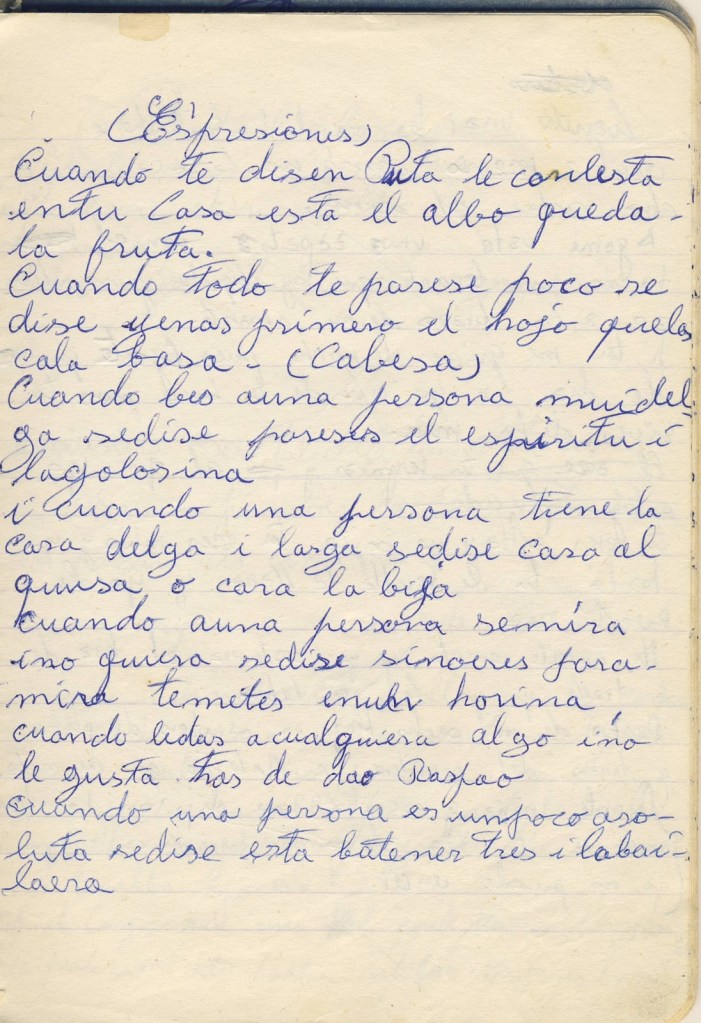 (Espresiones)
Cuando te disen Puta le contesta
entu Casa esta el albo queda-
la fruta.
Cuando todo te parese poco se
dise yenas primero el hojo quela
cala basa - (Cabesa)
Cuando beo auna persona muidel-
ga sedise pareses el espiritu i
lagolosina
i cuando una persona tiene la
cara delga i larga sedise cara al
quinsa o cara la bija
cuando auna persona semira
ino quiera sedise sinoeres para-
mira temetes enun horina
cuando ledas acualquiera algo ino
le gusta has de dao Raspao
cuando una persona es unpoco aso-
luta sedise esta batener tres i labai-
laera